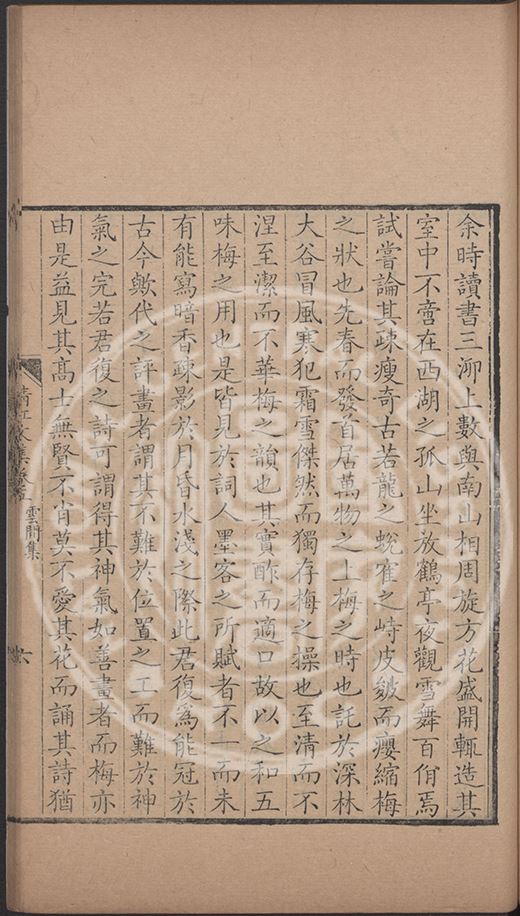 余時讀書三泖上數與南山相周旋方花盛開輒造其
室中不啻在西湖之孤山坐放鶴亭夜觀雪舞百佾焉
試嘗論其疎瘦奇古若龍之蛻隺之峙皮皴而癭縮梅
之狀也先春而發首居萬物之上梅之時也託於深林
大谷冒風寒犯霜雪傑然而獨存梅之操也至清而不
涅至潔而不華梅之韻也其實酢而適口故以之和五
味梅之用也是皆見於詞人墨客之所賦者不一而未
有能寫暗香疎影於月昏水淺之際此君復爲能冠於
古今歟代之評畫者謂其不難於位置之工而難於神
氣之完若君復之詩可謂得其神氣如善畫者而梅亦
由是益見其髙士無賢不肖莫不愛其花而誦其詩猶
清江文集卷
雲間集
六